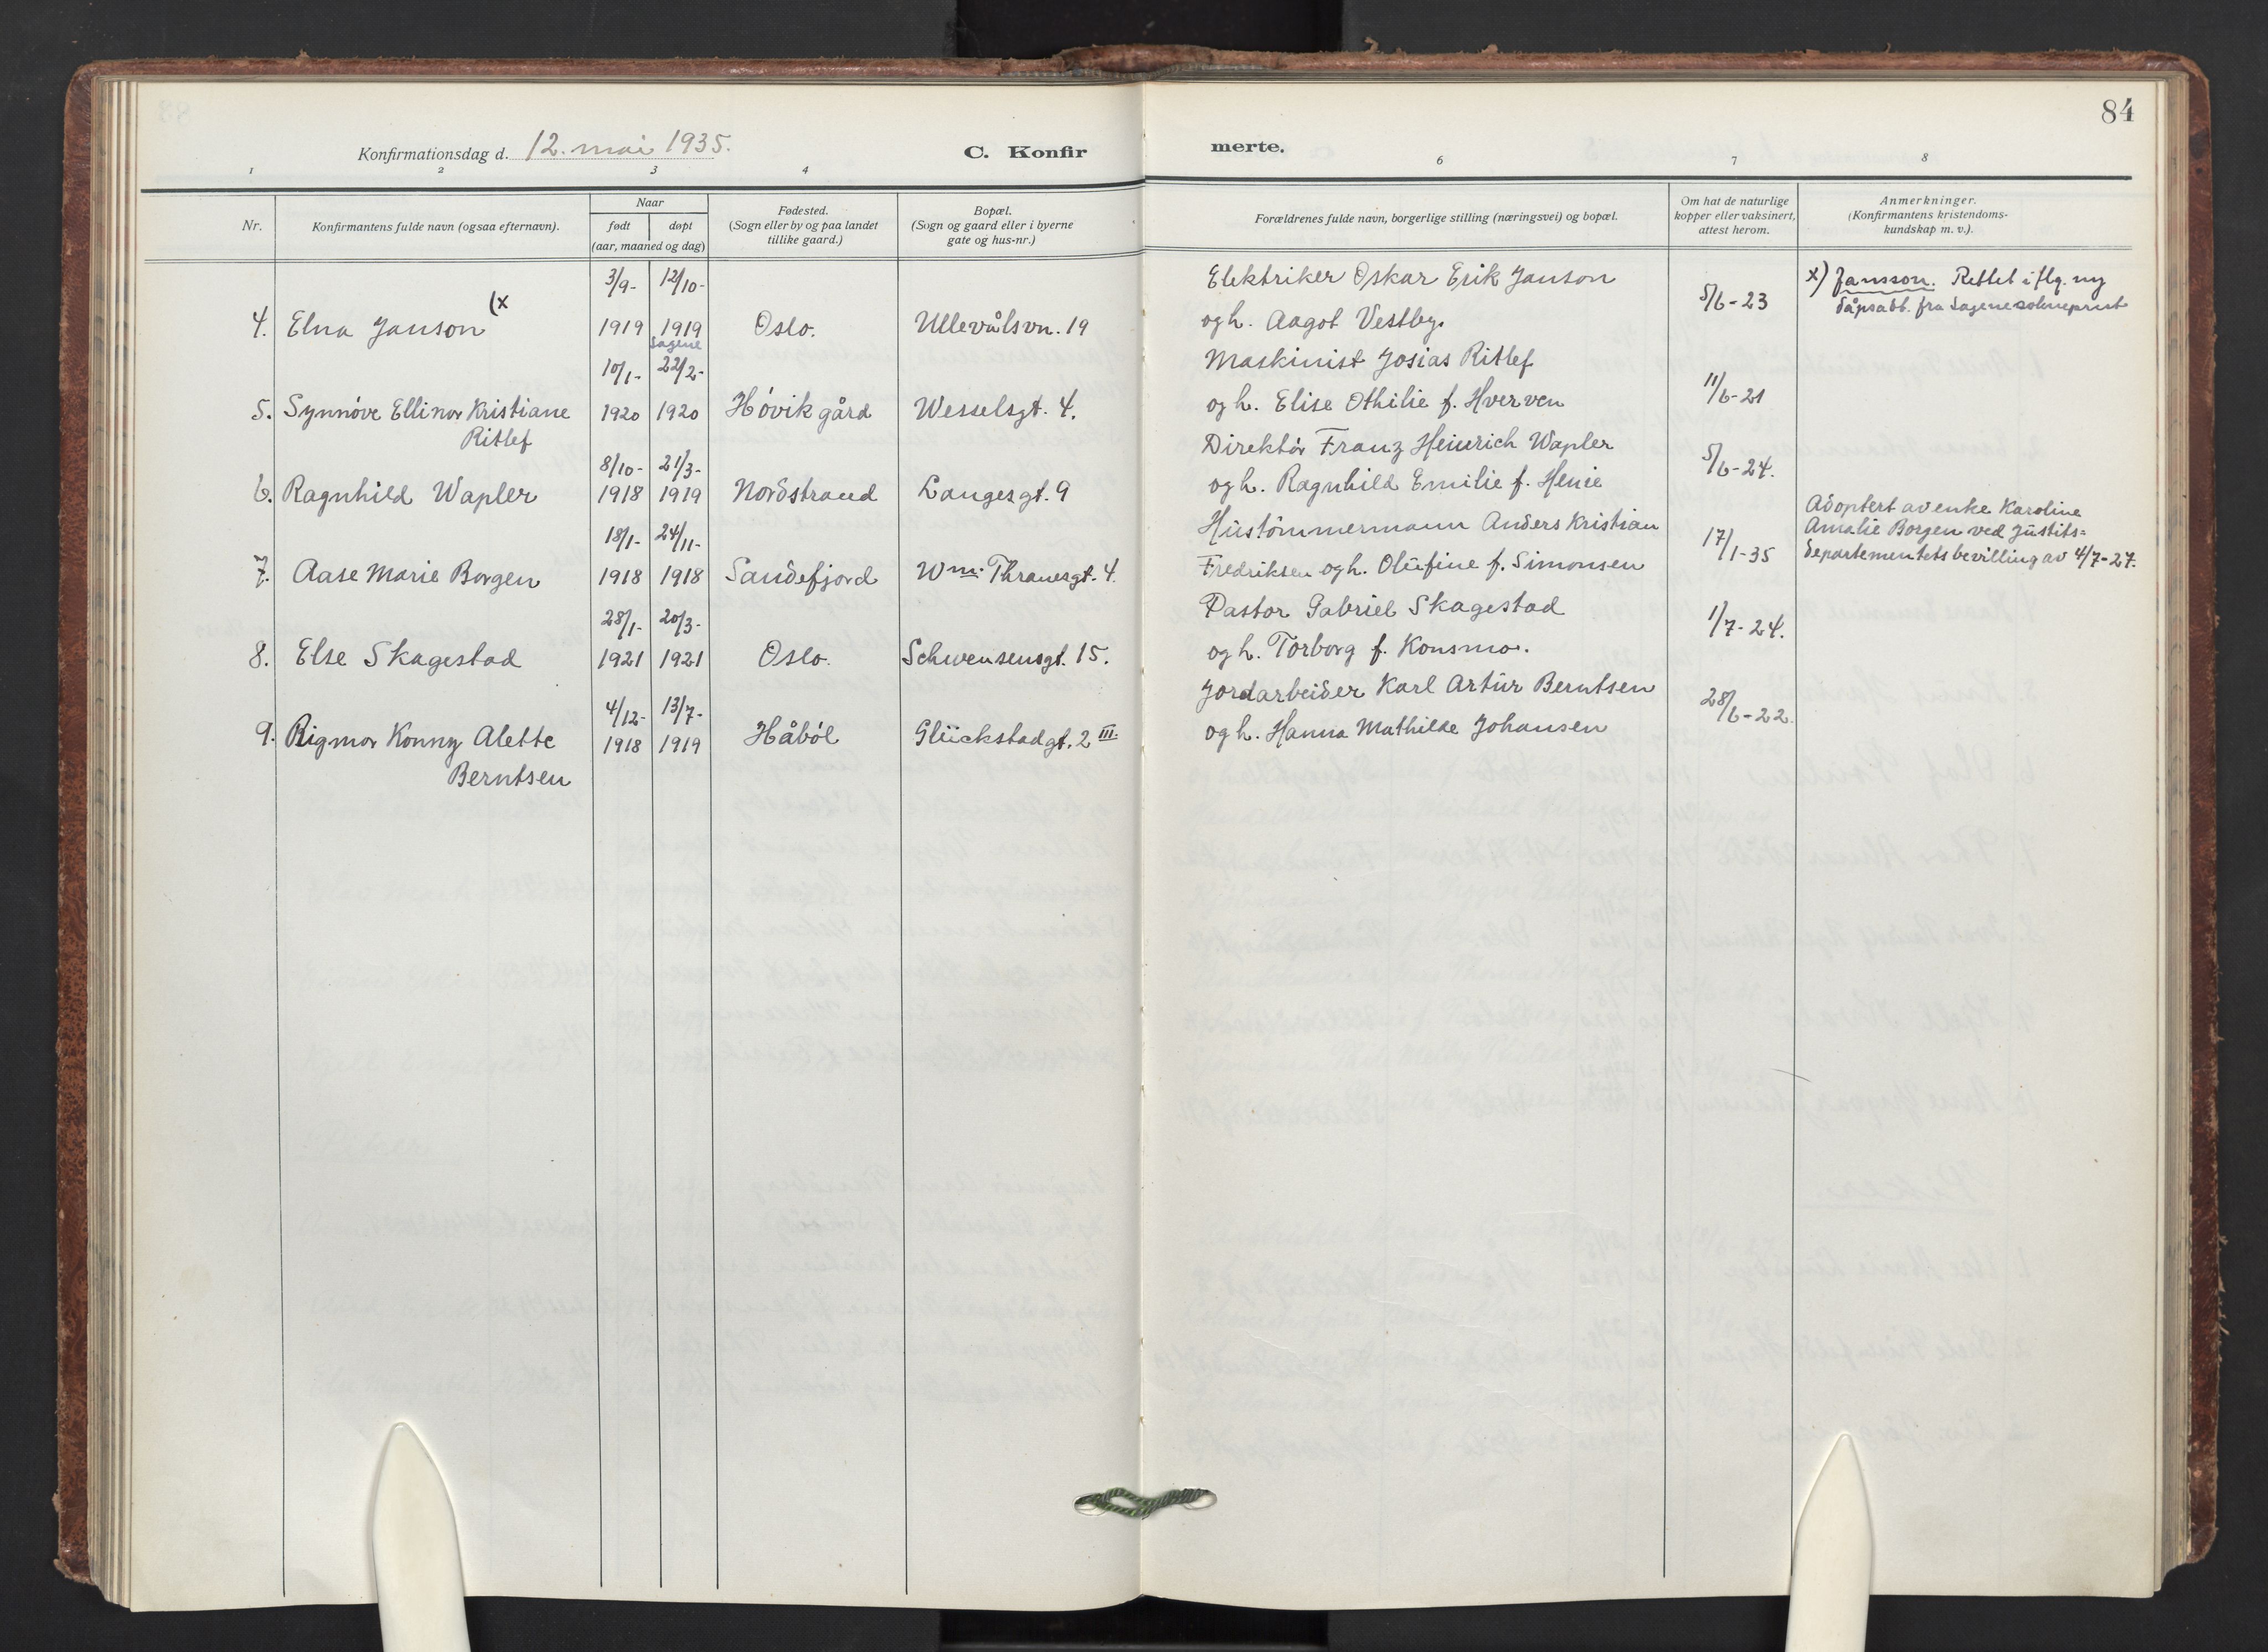 84
Konfirmationsdag d. 12. mai 1935.
C. Konfir
merte.
1 2 3 4 6 7 8
Nr.
Konfirmantens fulde navn (ogsaa efternavn).
Naar
født døpt
(aar, maaned og dag)
Fødested.
(Sogn eller by og paa landet
tillike gaard.)
Bopæl.
(Sogn og gaard eller i byerne
gate og hus-nr.)
Forældrenes fulde navn, borgerlige stilling (næringsvei) og bopæl.
Om hat de naturlige
kopper eller vaksinert,
attest herom.
Anmerkninger.
(Konfirmantens kristendoms-
kundskap m. v.).
3/9- 12/10- Elektriker Oskar Erik Janson x) Jansson. Rettet iflg. ny
4. Elna Janson (x 1919 1919 Oslo. Ullevålsvn. 19 og h. Aagot Vestby. 5/6-23 dåpsatt. fra Sagene
Sagene
10/1- 22/2- Maskinist Josias Ritlef
5. Synnöve Ellinor Kristiane 1920 1920 Hövik gård Wesselsgt. 4. og h. Elise Othilie f. Hverven 11/6-21
Ritlef
8/10- 21/3- Direktör Franz Heinrich Wapler
6. Ragnhild Wapler 1918 1919 Nordstrand Langesgt. 9 og h. Ragnhild Emilie f. Henie 5/6-24.
18/1- 24/11- Hustömmermann Anders Kristian Adoptert av enke Karoline
Amalie Borgen ved Justits=
7. Aase Marie Borgen 1918 1918 Sandefjord Wm. Thranesgt. 4. Fredriksen og h. Olufine f. Simonsen 17/1-35 departementets bevilling av 4/7-27.
28/1- 20/3- Pastor Gabriel Skagestad
8. Else Skagestad 1921 1921 Oslo. Schwensensgt. 15. og h. Torborg f. Konsmo. 1/7-24.
4/12- 13/7- Jordarbeider Karl Artur Berntsen
9. Rigmor Konny Alette 1918 1919 Håböl Glückstadgt. 2 III. og h. Hanna Mathilde Johansen 28/6-22.
Berntsen